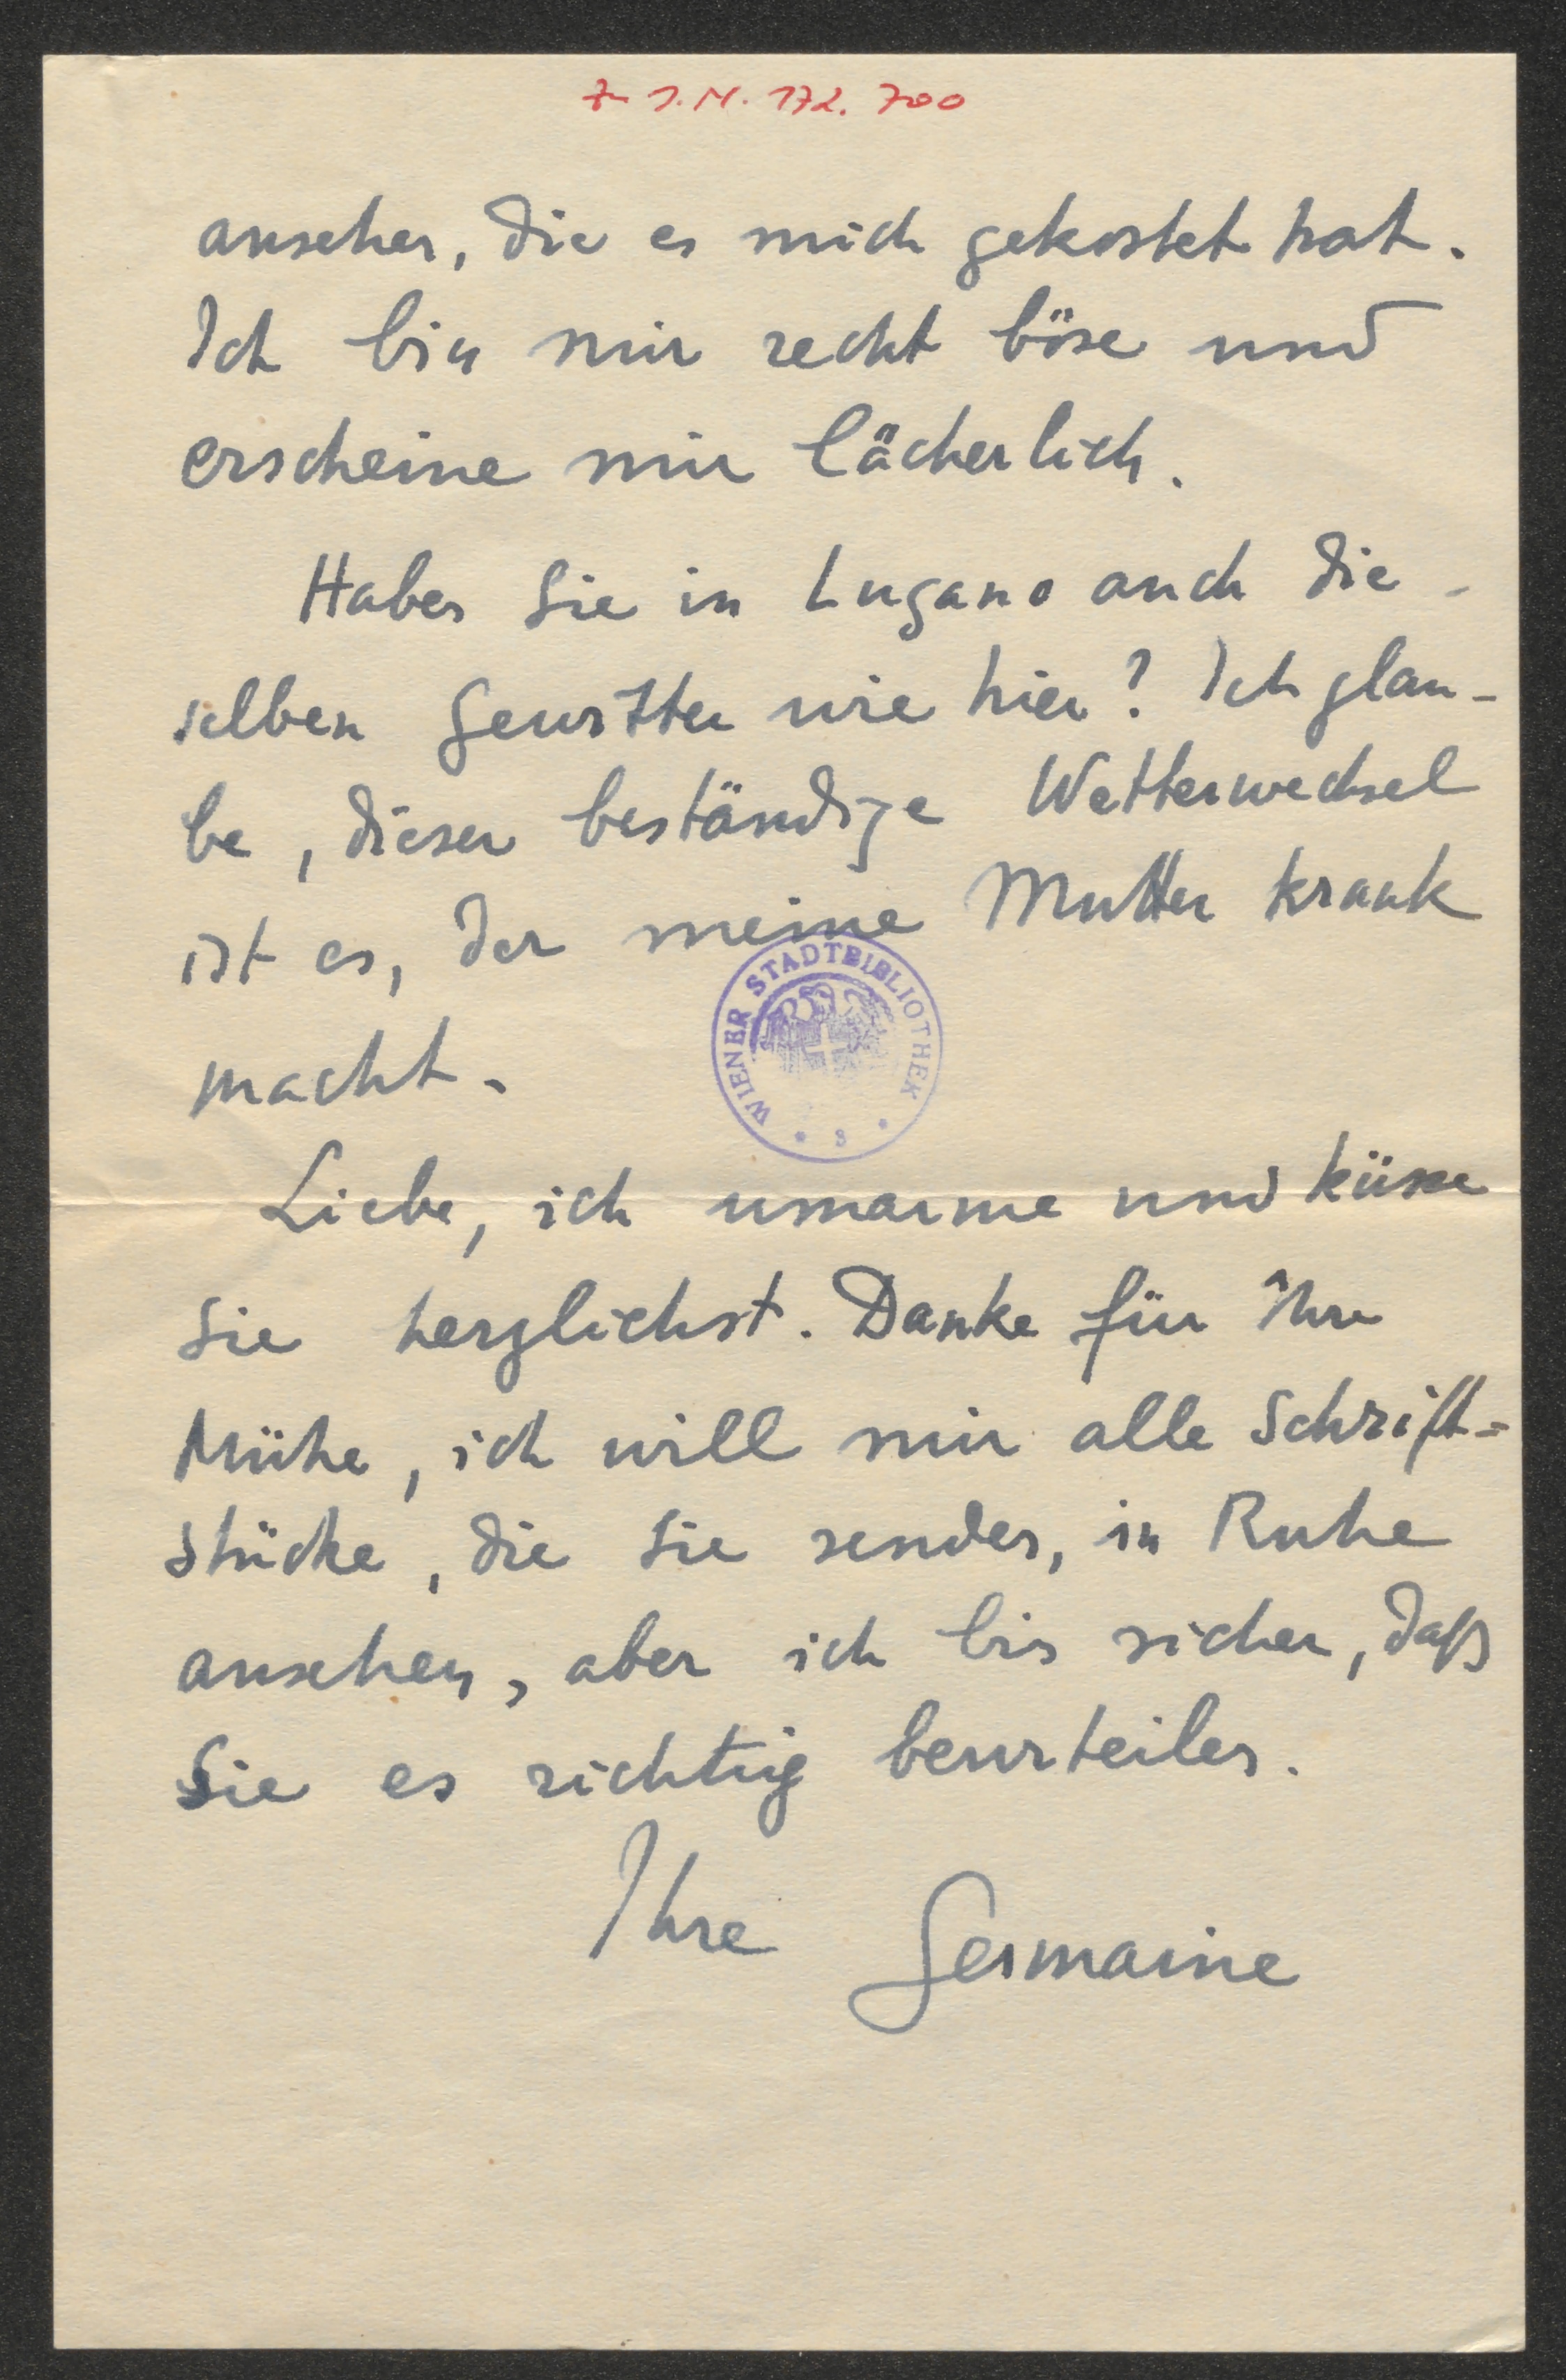 Zu I.N. 172.700
ansehen, die es mich gekostet hat.
Ich bin mir recht böse und
erscheine mir lächerlich.
Haben Sie in Lugano auch die-
selben Gewitter wie hier? Ich glau-
be, dieser beständige Wetterwechsel
ist es, der meine Mutter krank
macht.
WIENER STADTBIBLIOTHEK
* 3 *
Liebe, ich umarme und küsse
Sie herzlichst. Danke für Ihre
Mühe, ich will mir alle Schrift-
stücke, die Sie senden, in Ruhe
ansehen, aber ich bin sicher, daß
Sie es richtig beurteilen.
Ihre Germaine